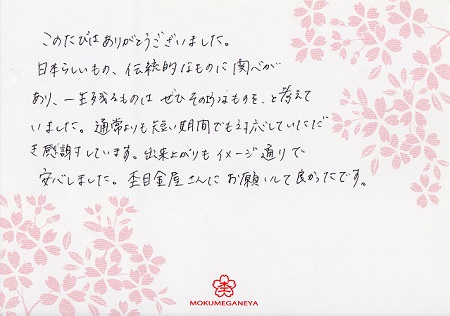 このたびはありがとうございました。
日本らしいもの、伝統的なものに関心が
あり、一生残るものは ぜひそのようなものを、と考えて
いました。通常よりも短い期間でも対応していただ
き感謝しています。出来上がりもイメージ通りで
安心しました。杢目金屋さんに お願いして良かったです。
杢
MOKUMEGANEYA